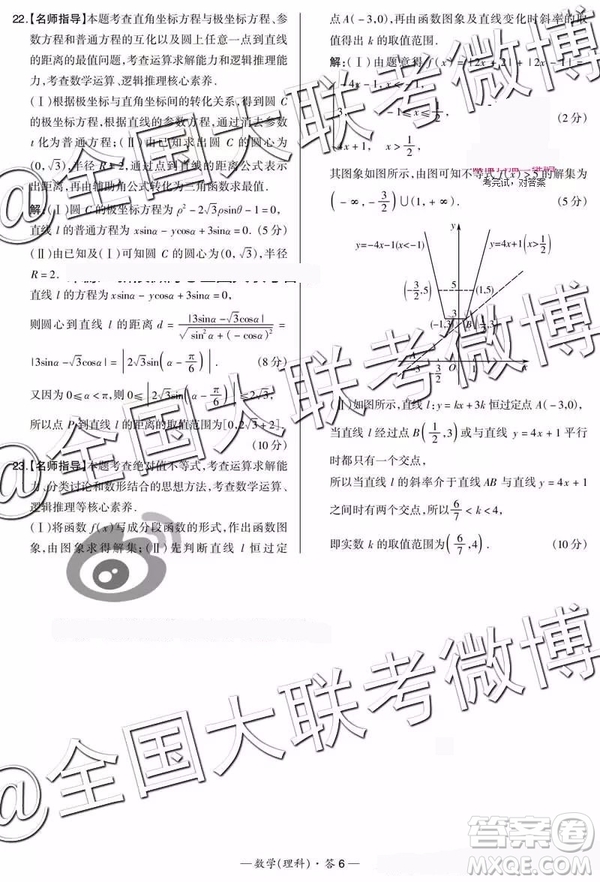 22.【名师指导】本题考查直角坐标方程与极坐标方程、参
数方程和普通方程的互化以及圆上任意一点到直线
的距离的最值问题,考查运算求解能力和逻辑推理能
力,考查数学运算、逻辑推理核心素养.
(Ⅰ)根据极坐标与直角坐标间的转化关系,得到圆 C
的极坐标方程,根据直线的参数方程,通过消去参数
t 化为普通方程;(Ⅱ)由已知求出圆 C 的圆心为
(0,√3),半径 R=2,根据点到直线的距离公式表示
出距离,再由辅助角公式转化为三角函数求最值.
解:(Ⅰ)圆 C 的极坐标方程为 ρ²-2√3ρsinθ-1=0,
直线 l 的普通方程为 xsinα-ycosα+3sinα=0. (5 分)
(Ⅱ)由题意及(Ⅰ)可知,圆 C 的圆心为(0,√3),半径
R=2.
直线 l 的方程为 xsinα-ycosα+3sinα=0,
则圆心到直线 l 的距离 d=|3sinα-√3cosα|/√(sin²α+(-cosα)²)=
|3sinα-√3cosα|=|2√3sin(α-π/6)|. (8 分)
又因为 0≤α<π,则 0≤|2√3sin(α-π/6)|≤2√3,
所以点 P 到直线 l 的距离的取值范围为[0,2√3+2].
(10 分)
23.【名师指导】本题考查绝对值不等式,考查运算求解能
力、分类讨论和数形结合的思想方法,考查数学运算、
逻辑推理等核心素养.
(Ⅰ)将函数 f(x)写成分段函数的形式,作出函数图
象,由图象求得解集;(Ⅱ)先判断直线 l 恒过定
点 A(-3,0),再由函数图象及直线变化时斜率的取
值得出 k 的取值范围.
解:(Ⅰ)由题意得 f(x)=|2x+2|+|2x-1|=
-4x-1,x<-1,
(2 分)
其图象如图所示,由图可知不等式 f(x)>5 的解集为
考完试,对答案
(-∞,-3/2)∪(1,+∞). (5 分)
y=-4x-1(x<-1)
y=4x+1(x>1/2)
(-3/2,5)
5
(1,5)
(-1,3)
B(1/2,3)
(Ⅱ)如图所示,直线 l:y=kx+3k 恒过定点 A(-3,0),
当直线 l 经过点 B(1/2,3)或与直线 y=4x+1 平行时
均有一个交点,
所以当直线 l 的斜率介于直线 AB 与直线 y=4x+1
之间时有两个交点,可以求得 6/7<k<4,
即实数 k 的取值范围为(6/7,4). (10 分)
@全国大联考微博
@全国大联考微博
@全国大联考微博
—数学(理科)·答 6—
答案圈
MXQE.COM